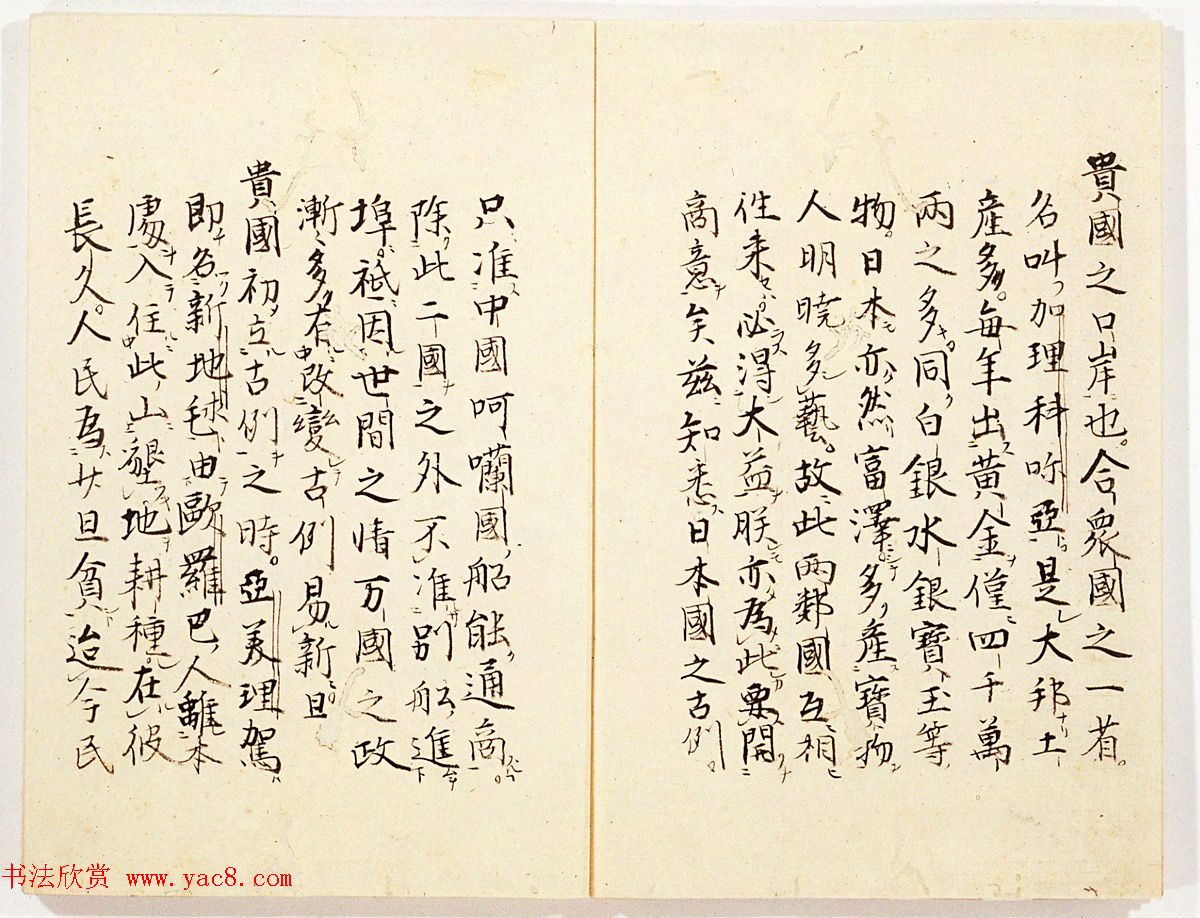 貴國之口岸也。合衆國之一省。
名叫加理科呀亞是大邦土
產多。每年出黃金僅四千萬
兩之多。同白銀水銀寶玉等
物。日本亦然富澤多產寶物
人明曉多藝。故此兩鄰國互相
往来必得大益朕亦為此要開
商意矣兹知悉日本國之古例
只准中國呵囒國船能通商。
除此二國之外不准別船進
埠。祗因世間之情万國之政
漸〻多有改變古例易新且
貴國初立古例之時。亞美理駕
即名新地毬由歐羅巴人離本
處入住此山壑地耕種。在彼
長久。人民為廿且貧迨今民
书法欣赏 www.yac8.com